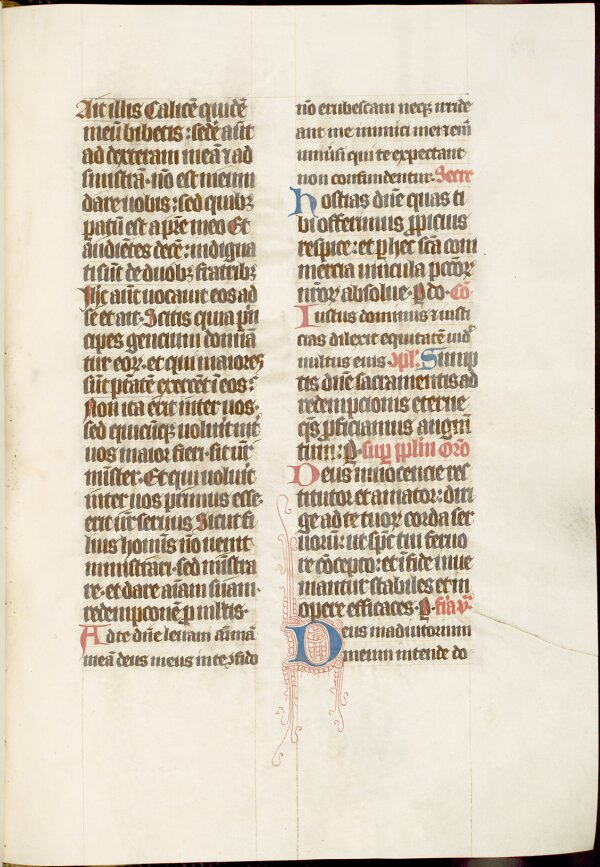 Ait illis Calicē quidē
meū bibetis: sedē aūt
ad dexteram meā ⁊ ad
sinistrā· nō est meum
dare uobis: sed quibꝫ
patū est a pre meo Et
audiētes decē: indigna
ti sūt de duobꝫ fratribꝫ
Ihc aūt uocauit eos ad
se et ait· Scitis quia prī
cipes gencium domiā
tur eoꝝ· et qui maiores
sūt ptātē exercēt ī eos:
Non ita erit inter uos·
sed quicūqꝫ uoluīt int̄
uos maior fieri· sit ur̄
mīster· Et qui uoluit
inter uos primus esse·
erit ur̄ seruus Sicut fi
lius homīs nō uenit
ministrari· sed mīstra
re· et dare aīam suam·
redempcionē ꝓ multis·
Ad te dn̄e leuaui aīmā
meā deus meus in te ꝯfido
nō erubescam neqꝫ irride
ant me inimici mei eteīm
uniūsi qui te expectant
non confundentur· Secre
hostias dn̄e quas ti
bi offerimus ꝓpicius
respice: et ꝑ hec scā com
mercia uincula pctōꝝ
nr̄oꝝ absolue· ꝑ do· Cō·
Iustus dominus ⁊ iusti
cias dilexit equitatē uid̄
uultus eius· 9pl̄· Sump
tis dn̄e sacramentis ad
redempcionis eterne
q̄s ꝓficiamus augm̄
tum: ꝑ· sup̄ pplm̄ Or̄o
Deus innocencie res
titutor et amator: diri
ge ad te tuoꝝ corda ser
uoꝝ: ut sp̄c tui feruo
re cōcepto: et ī fide inue
niantur stabiles et in
opere efficaces· ꝑ· fīa v·
Deus in adiutorium
meum intende do